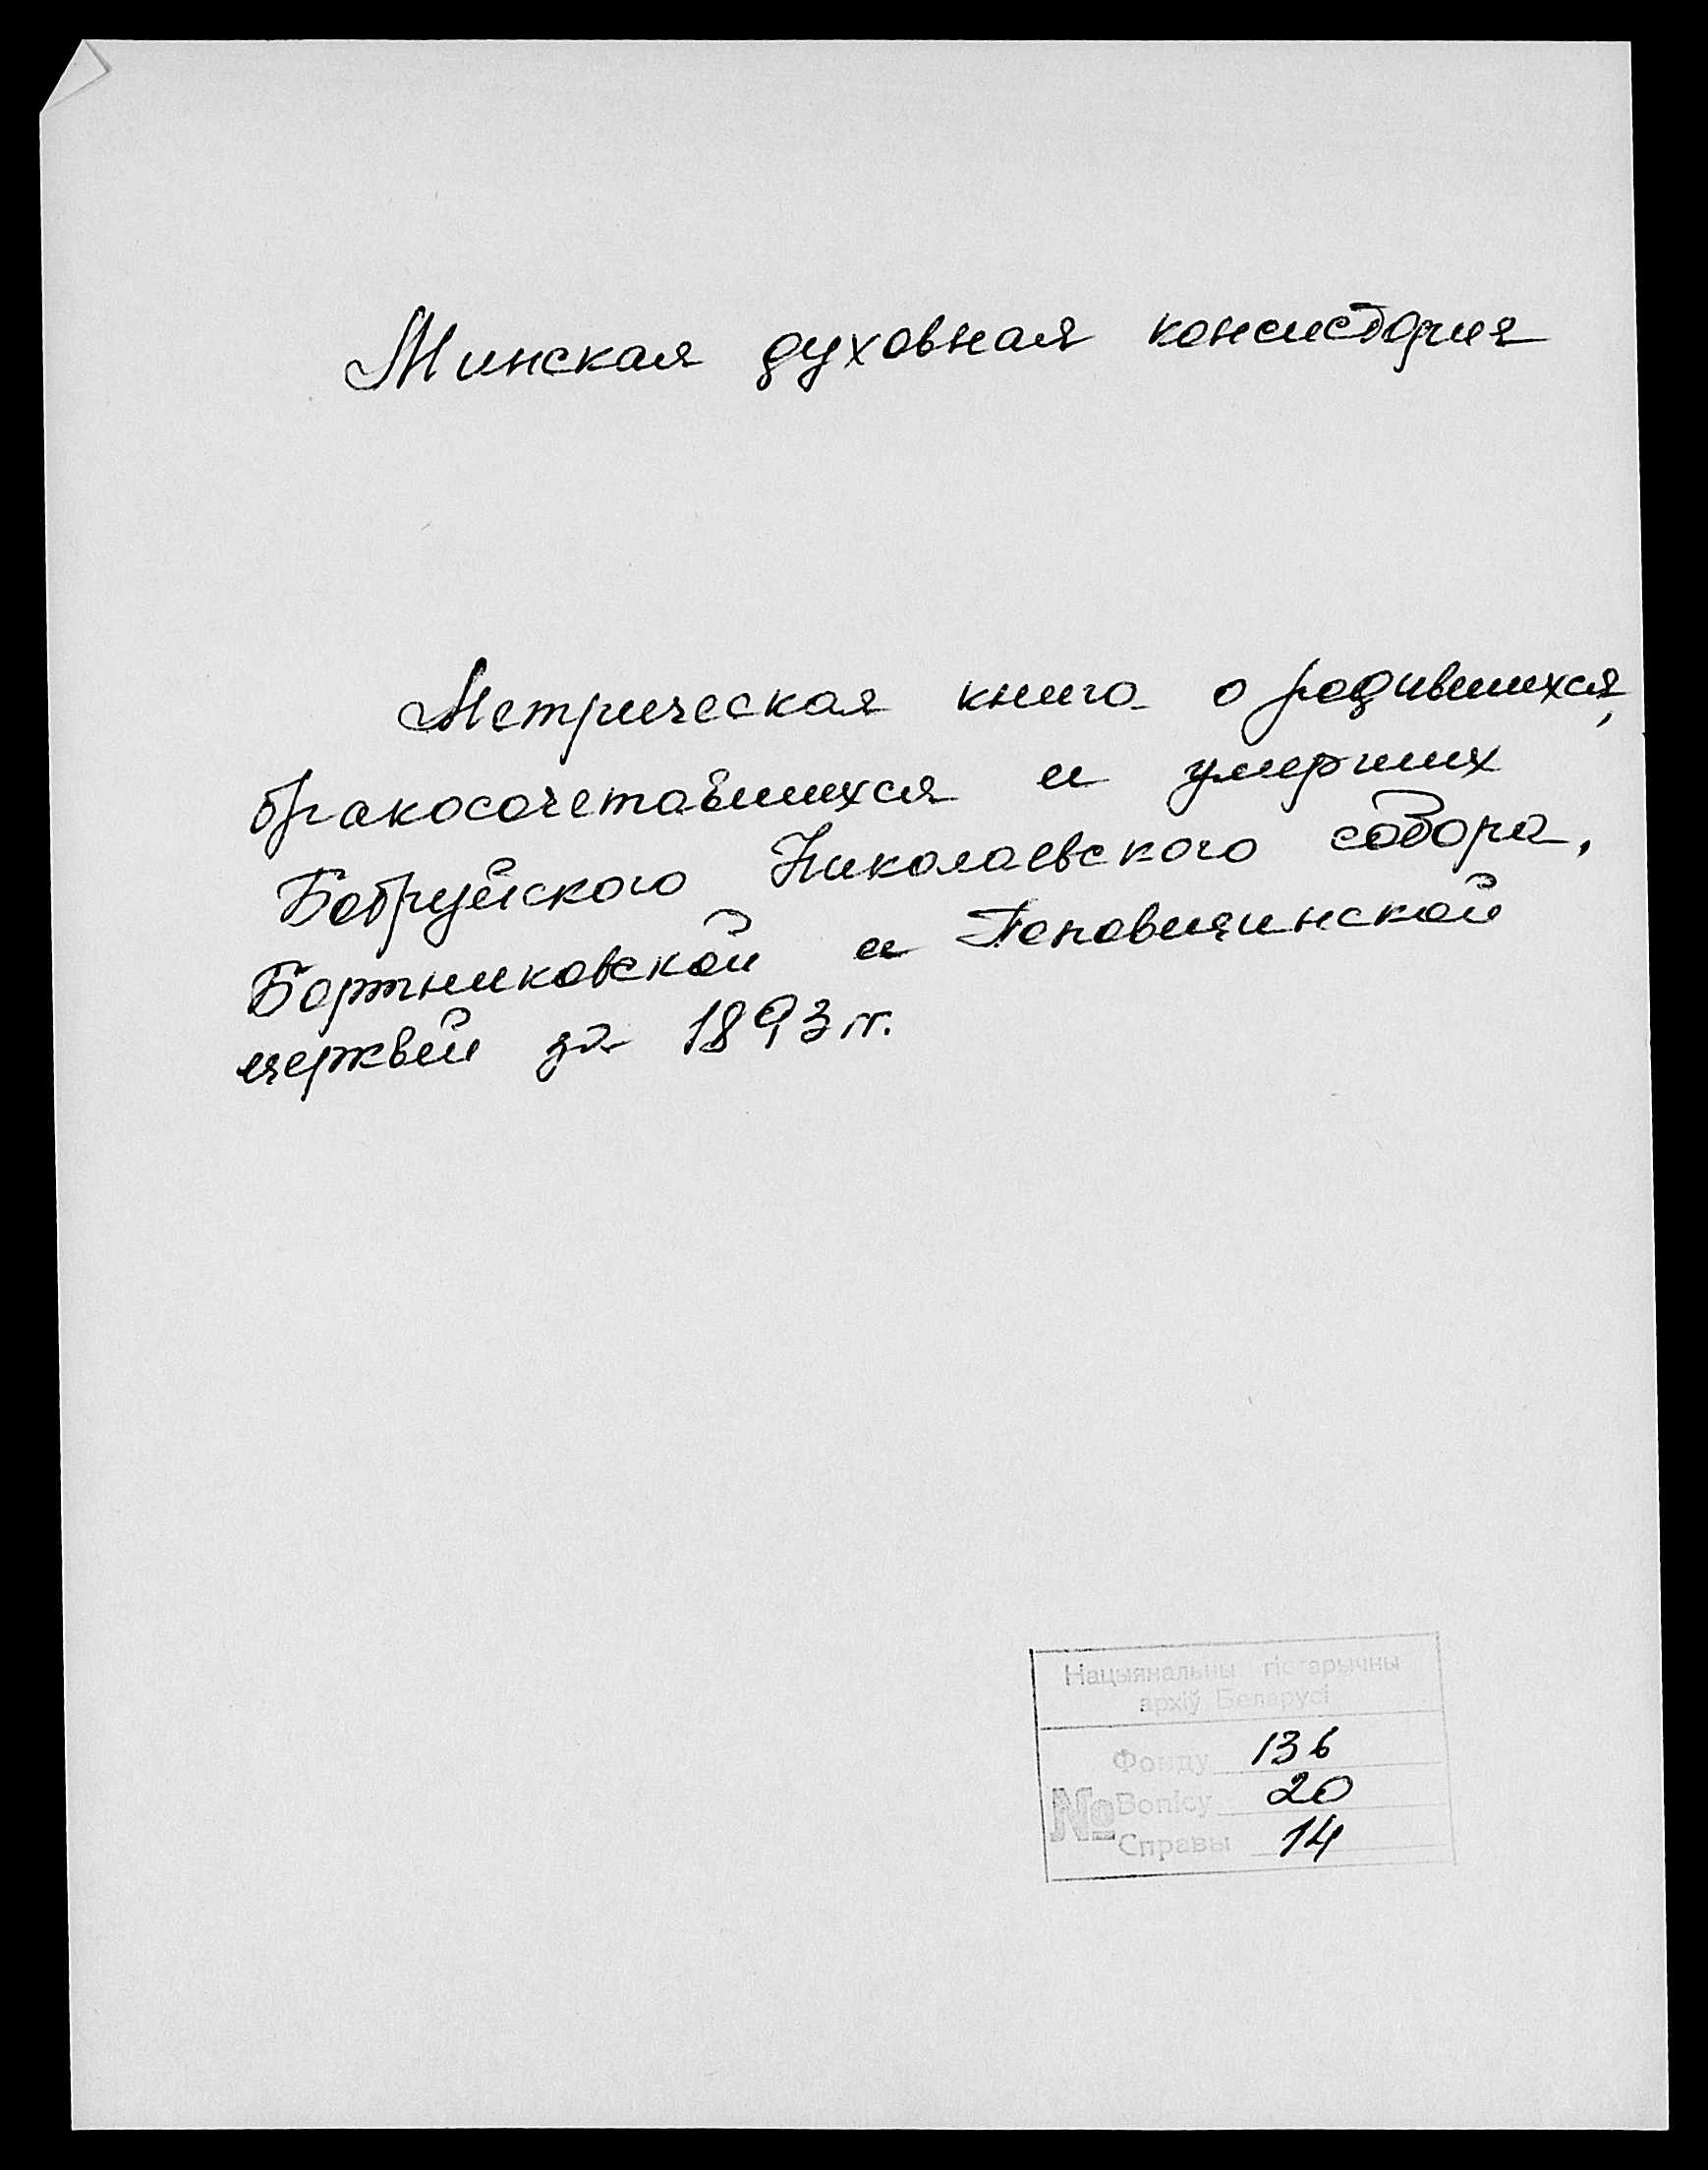 Минская духовная консистория
Метрическая книга о родившихся,
бракосочетавшихся и умерших
Бобруйского Николаевского собора,
Бортниковской и Поповщинской
церквей за 1893 г.
Нацыянальны гістарычны
архіў Беларусі
Фонду 136
№ Вопісу 20
Справы 14